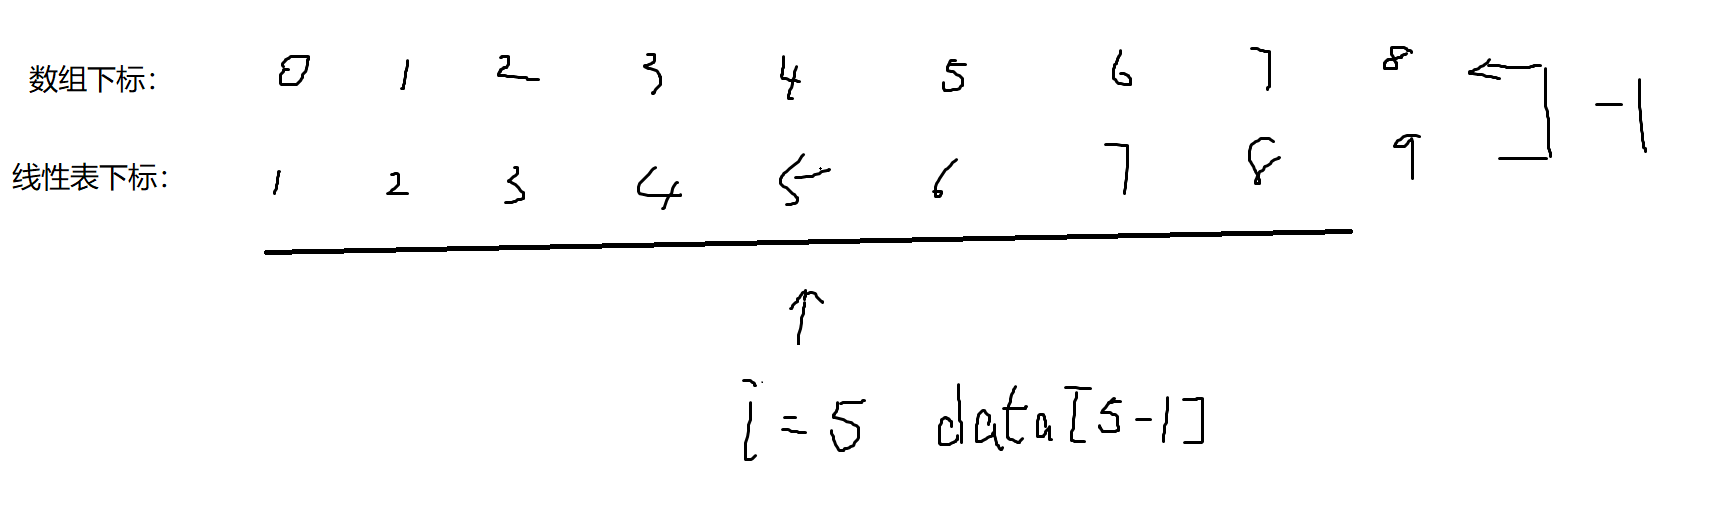 数组下标： 0 1 2 3 4 5 6 7 8 -1
线性表下标： 1 2 3 4 5 6 7 8 9
i=5 data[5-1]